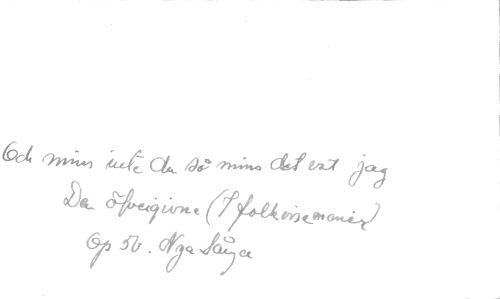 Och mins inte du så mins det ext jag
Den öfvergivne (I folkvisemanér)
Op 50. Nya Sånger